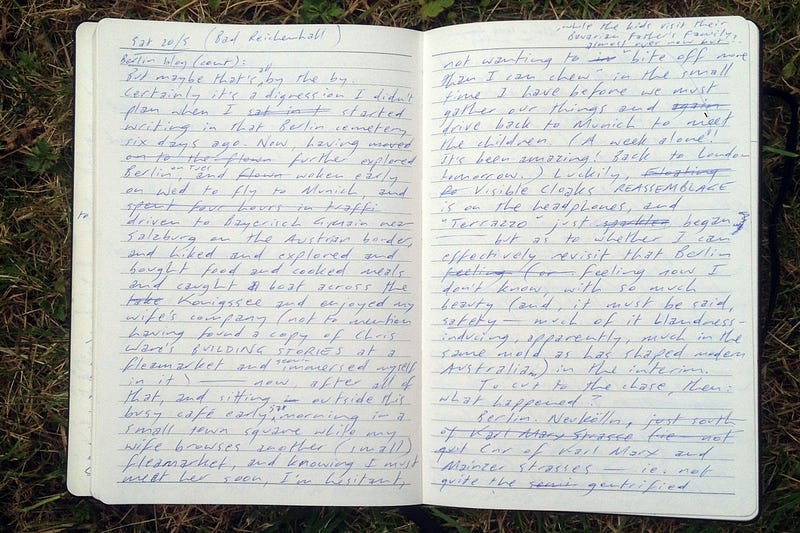 Sat 20/5 (Bad Reichenhall)
Berlin blog (cont):
But maybe that's all by the by.
Certainly it's a digression I didn't
plan when I sat in t started
writing in that Berlin cemetery
six days ago. Now, having moved
on to the flown further explored
Berlin, on Tues and flown woken early
on Wed to fly to Munich, and
spent four hours in traffic
driven to Bayerisch Gmain near
Salzburg on the Austrian border,
and hiked and explored and
bought food and cooked meals
and caught a boat across the
lake Konigssee and enjoyed my
wife's company (not to mention
having found a copy of Chris
Ware's BUILDING STORIES at a
fleamarket and immersed myself
in it) — now, after all of
that, and sitting in outside this
busy café early Sat morning in a
small town square while my
wife browses another (small)
fleamarket, and knowing I must
meet her soon, I'm hesitant,
to
while the kids visit their
Bavarian father's family,
almost over now but...
not wanting to in "bite off more
than I can chew" in the small
time I have before we must
gather our things and again
drive back to Munich to meet
the children. (A week alone!!
It's been amazing! Back to London
tomorrow.) Luckily, Floating
Po Visible Cloaks REASSEMBLAGE
is on the headphones, and
"Terrazzo" just sparkles began,
— but as to whether I can
effectively revisit that Berlin
feeling (or feeling now I
don't know, with so much
beauty (and, it must be said,
safety — much of it blandness-
inducing, apparently, much in the
same mold as has shaped modern
Australia) in the interim.
To cut to the chase, then:
what happened?
Berlin. Neukölln, just south
of Karl Marx Strasse (ie not
got Cnr of Karl Marx and
Mainzer strasses — ie. not
quite the semi gentrified